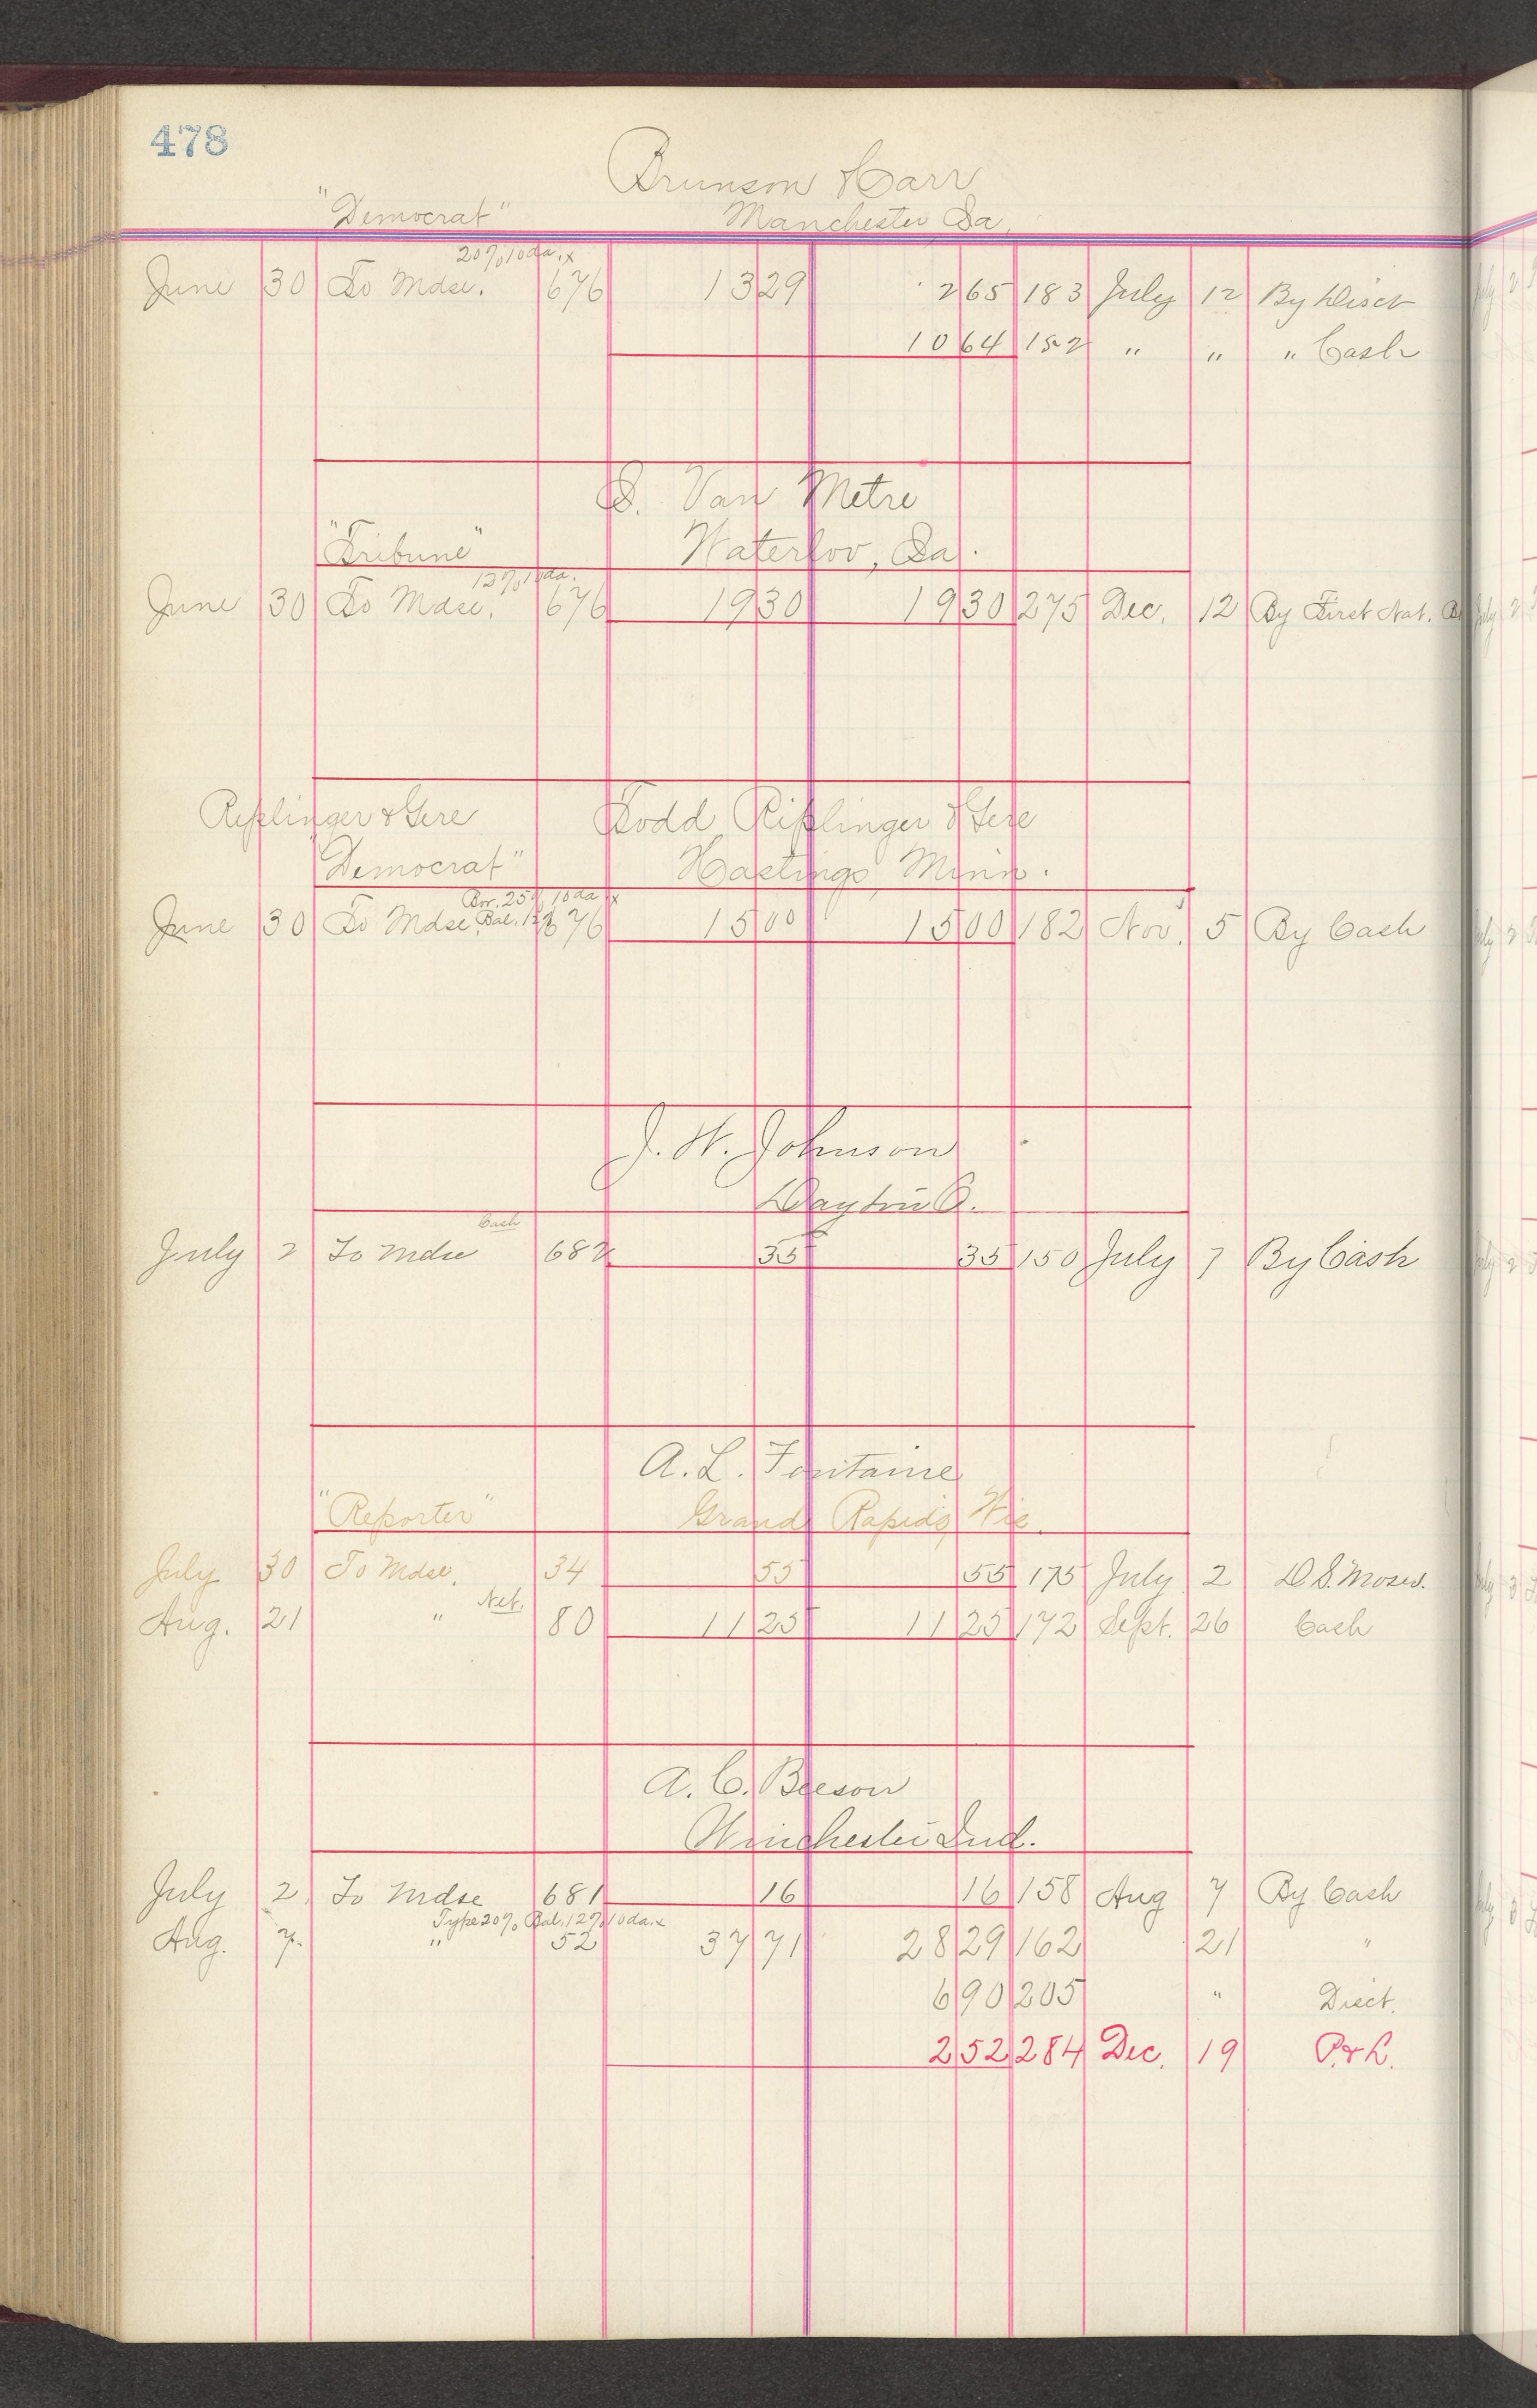 478
Brunson & Carr
"Democrat" Manchester Ia.
20% 10 da. x
June 30 To Mdse. 676 13 29 2 65 183 July 12 By Disct
10 64 152 " " " Cash
Van Metre
"Tribune" Waterloo, Ia.
12% 10 da.
June 30 To Mdse. 676 19 30 19 30 275 Dec. 12 By First Nat.
Ripplinger & Gere Todd, Ripplinger & Gere
"Democrat" Hastings Minn.
Bor. 25% 10 da x
June 30 To Mdse. Bal. 12% 676 15 00 15 00 182 Nov. 5 By Cash
J. W. Johnson
Dayton O.
Cash
July 2 To Mdse 682 35 35 150 July 7 By Cash
A. L. Fontaine
"Reporter" Grand Rapids, Wis.
July 30 To Mdse. 34 55 55 175 July 2 D. S. Moses.
Net.
Aug. 21 " 80 11 25 11 25 172 Sept. 26 Cash
A. C. Beeson
Winchester Ind.
July 2 To Mdse 681 16 16 158 Aug 7 By Cash
Type 20% Bal. 12% 10 da. x
Aug. 7. " 52 37 71 28 29 162 21 "
6 90 205 " Disct.
2 52 284 Dec. 19 P. & L.